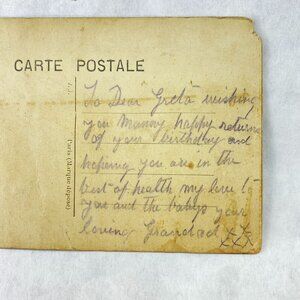 CARTE POSTALE
To Dear Greta wishing
you Manny happy returns
of your birthday and
hopeing you are in the
best of health my love to
you and the babys your
loving Grandad xxx